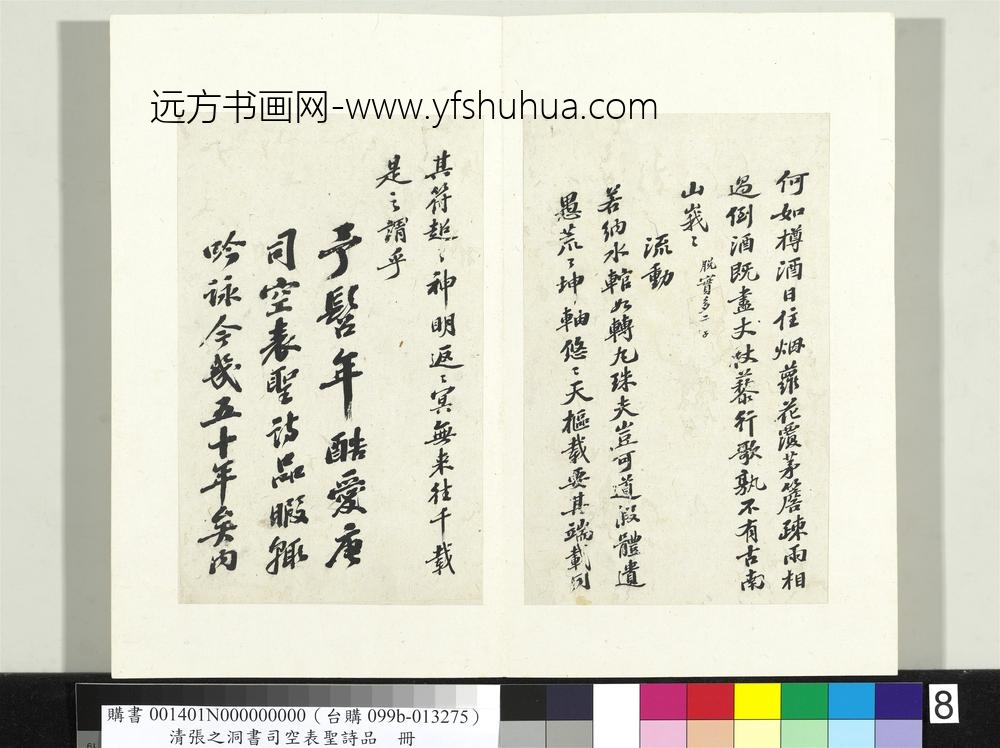 远方书画网-www.yfshuhua.com
何如樽酒日往烟蘿花覆茅簷疎雨相
過倒酒既盡杖藜行歌孰不有古南
山峩〻 脫實多二子
流動
若納水輨如轉丸珠夫豈可道假體遺
愚荒〻坤軸悠〻天樞載要其端載同
其符超〻神明返〻冥無来往千載
是之謂乎
予髫年酷愛唐
司空表聖詩品暇輒
吟詠今幾五十年矣內
8
購書 001401N000000000（台購 099b-013275）
清張之洞書司空表聖詩品 冊